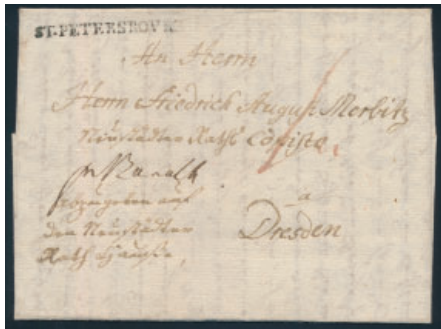 ST.PETERSBOVRG
An Herrn
Herrn Friedrich August Morbitz
Neustädter Raths Copiste
a
Dresden
abzugeben auf
dem Neustädter
Rath Hause